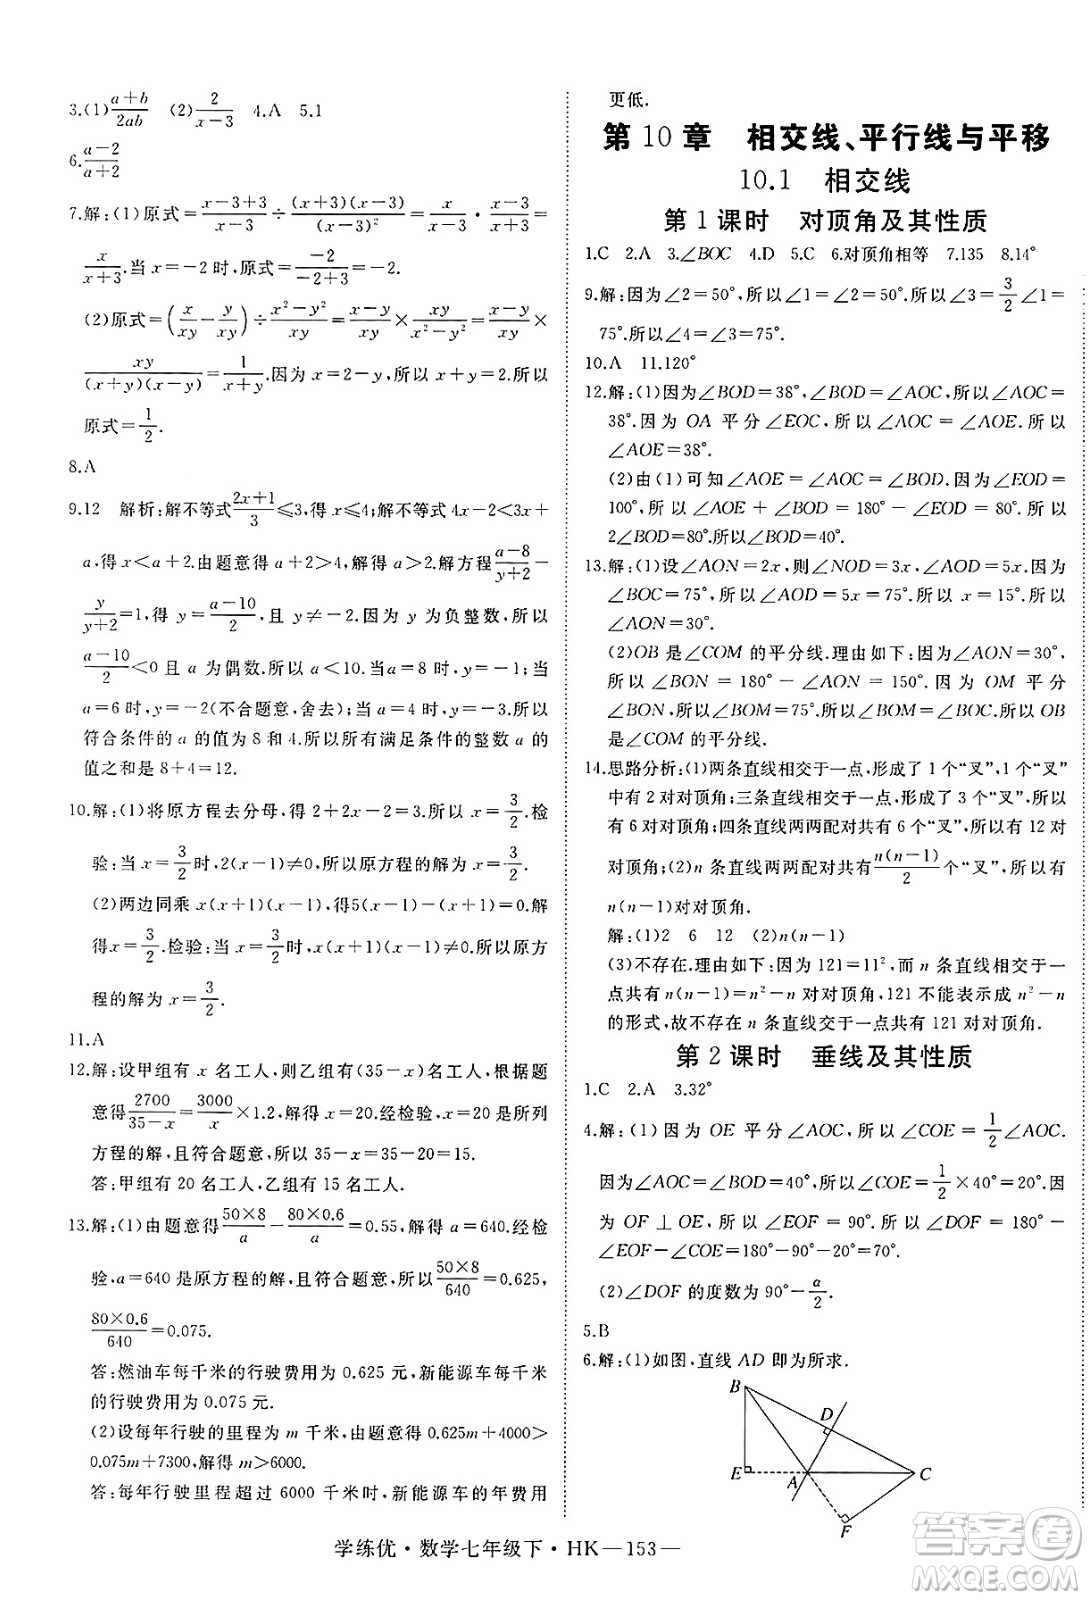 3.(1)\frac{a+b}{2ab} (2)\frac{2}{x-3} 4.A 5.1
6.\frac{a-2}{a+2}
7.解:(1)原式=\frac{x-3+3}{x-3}÷\frac{(x+3)(x-3)}{(x-3)^2}=\frac{x}{x-3}·\frac{x-3}{x+3}=
\frac{x}{x+3}.当 x=-2时,原式=\frac{-2}{-2+3}=-2.
(2)原式=(\frac{x}{xy}-\frac{y}{xy})÷\frac{x^2-y^2}{xy}=\frac{x-y}{xy}×\frac{xy}{x^2-y^2}=\frac{x-y}{xy}×
\frac{xy}{(x+y)(x-y)}=\frac{1}{x+y}.因为 x=2-y,所以 x+y=2.所以
原式=\frac{1}{2}.
8.A
9.12 解析:解不等式\frac{2x+1}{3}≤3,得 x≤4;解不等式 4x-2<3x+
a,得 x<a+2.由题意得 a+2>4,解得 a>2.解方程\frac{a-8}{y+2}-
\frac{y}{y+2}=1,得 y=\frac{a-10}{2},且 y≠-2.因为 y 为负整数,所以
\frac{a-10}{2}<0 且 a 为偶数.所以 a<10.当 a=8 时,y=-1;当
a=6 时,y=-2(不合题意,舍去);当 a=4 时,y=-3.所以
符合条件的 a 的值为 8 和 4.所以所有满足条件的整数 a 的
值之和是 8+4=12.
10.解:(1)将原方程去分母,得 2+2x-2=3.所以 x=\frac{3}{2}.检
验:当 x=\frac{3}{2}时,2(x-1)≠0,所以原方程的解为 x=\frac{3}{2}.
(2)两边同乘 x(x+1)(x-1),得5(x-1)-(x+1)=0.解
得 x=\frac{3}{2}.检验:当 x=\frac{3}{2}时,x(x+1)(x-1)≠0.所以原方
程的解为 x=\frac{3}{2}.
11.A
12.解:设甲组有 x 名工人,则乙组有(35-x)名工人.根据题
意得\frac{2700}{35-x}=\frac{3000}{x}×1.2,解得 x=20.经检验,x=20 是所列
方程的解,且符合题意,所以 35-x=35-20=15.
答:甲组有 20 名工人,乙组有 15 名工人.
13.解:(1)由题意得\frac{50×8}{a}-\frac{80×0.6}{a}=0.55,解得 a=640.经检
验,a=640 是原方程的解,且符合题意,所以\frac{50×8}{640}=0.625,
\frac{80×0.6}{640}=0.075.
答:燃油车每千米的行驶费用为 0.625 元,新能源车每千米
的行驶费用为 0.075 元.
(2)设每年行驶的里程为 m 千米,由题意得 0.625m+4000>
0.075m+7300,解得 m>6000.
答:每年行驶里程超过 6000 千米时,新能源车的年费用
更低.
第 10 章 相交线、平行线与平移
10.1 相交线
第 1 课时 对顶角及其性质
1.C 2.A 3.∠BOC 4.D 5.C 6.对顶角相等 7.135 8.14°
9.解:因为∠2=50°,所以∠1=∠2=50°,所以∠3=\frac{3}{2}∠1=
75°.所以∠4=∠3=75°.
10.A 11.120°
12.解:(1)因为∠BOD=38°,∠BOD=∠AOC,所以∠AOC=
38°.因为 OA 平分∠EOC,所以∠AOC=∠AOE.所以
∠AOE=38°.
(2)由(1)可知∠AOE=∠AOC=∠BOD.因为∠EOD=
100°,所以∠AOE+∠BOD=180°-∠EOD=80°,所以
2∠BOD=80°.所以∠BOD=40°.
13.解:(1)设∠AON=2x,则∠NOD=3x,∠AOD=5x.因为
∠BOC=75°,所以∠AOD=5x=75°.所以 x=15°.所以
∠AON=30°.
(2)OB 是∠COM 的平分线.理由如下:因为∠AON=30°,
所以∠BON=180°-∠AON=150°.因为 OM 平分
∠BON,所以∠BOM=75°.所以∠BOM=∠BOC.所以 OB
是∠COM 的平分线.
14.思路分析:(1)两条直线相交于一点,形成了 1 个“叉”,1 个“叉”
中有 2 对对顶角;三条直线相交于一点,形成了 3 个“叉”,所以
有 6 对对顶角;四条直线两两配对共有 6 个“叉”,所以有 12 对
对顶角;(2)n 条直线两两配对共有\frac{n(n-1)}{2}个“叉”,所以有
n(n-1)对对顶角.
解:(1)2 6 12 (2)n(n-1)
(3)不存在.理由如下:因为 121=11²,而 n 条直线相交于一
点共有 n(n-1)=n²-n 对对顶角,121 不能表示成 n²-n
的形式,故不存在 n 条直线交于一点共有 121 对对顶角.
第 2 课时 垂线及其性质
1.C 2.A 3.32°
4.解:(1)因为 OE 平分∠AOC,所以∠COE=\frac{1}{2}∠AOC.
因为∠AOC=∠BOD=40°,所以∠COE=\frac{1}{2}×40°=20°.因
为 OF⊥OE,所以∠EOF=90°.所以∠DOF=180°-
∠EOF-∠COE=180°-90°-20°=70°.
(2)∠DOF 的度数为 90°-\frac{α}{2}.
5.B
6.解:(1)如图,直线 AD 即为所求.
B
D
E
A
C
F
学练优·数学七年级下·HK—153—
答案圈
MXQE.COM